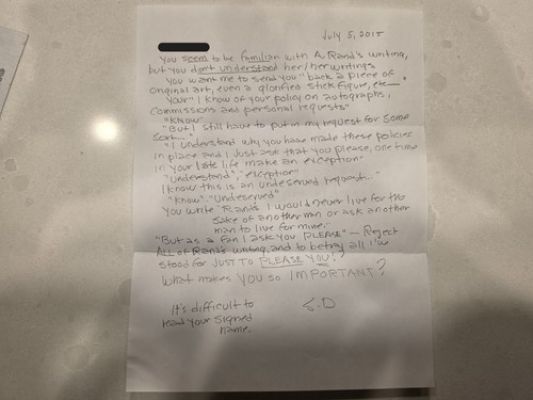 July 5, 2015
You seem to be familiar with A. Rand's writing,
but you don't understand her/her writings
You want me to send you "back a piece of
original art, even a glorified stick figure, etc—"
"Your" I know of your policy on autographs,
commissions and personal requests"
"Know"
"But I still have to put in my request for some
sort..."
"I understand why you have made these policies
in place and I just ask that you please, one time
in your late life make an exception"
"Understand", "exception"
I know this is an undeserved request..."
"Know" "Undeserved"
You write "Rand's I would never live for the
sake of another man or ask another
man to live for mine."
"But as a fan I ask you PLEASE" — Reject
ALL of Rand's writing, and to betray all I've
stood for JUST TO PLEASE YOU!
What makes you so IMPORTANT?
It's difficult to
read your signed
name.
S.D